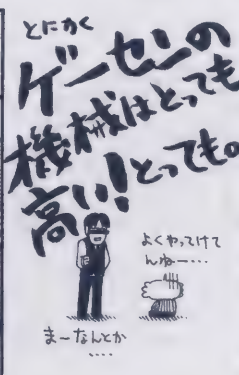 とにかく
ゲーセンの
機械はとっても
高い!とっても。
よくやってけて
んねー…
まーなんとか
‥‥